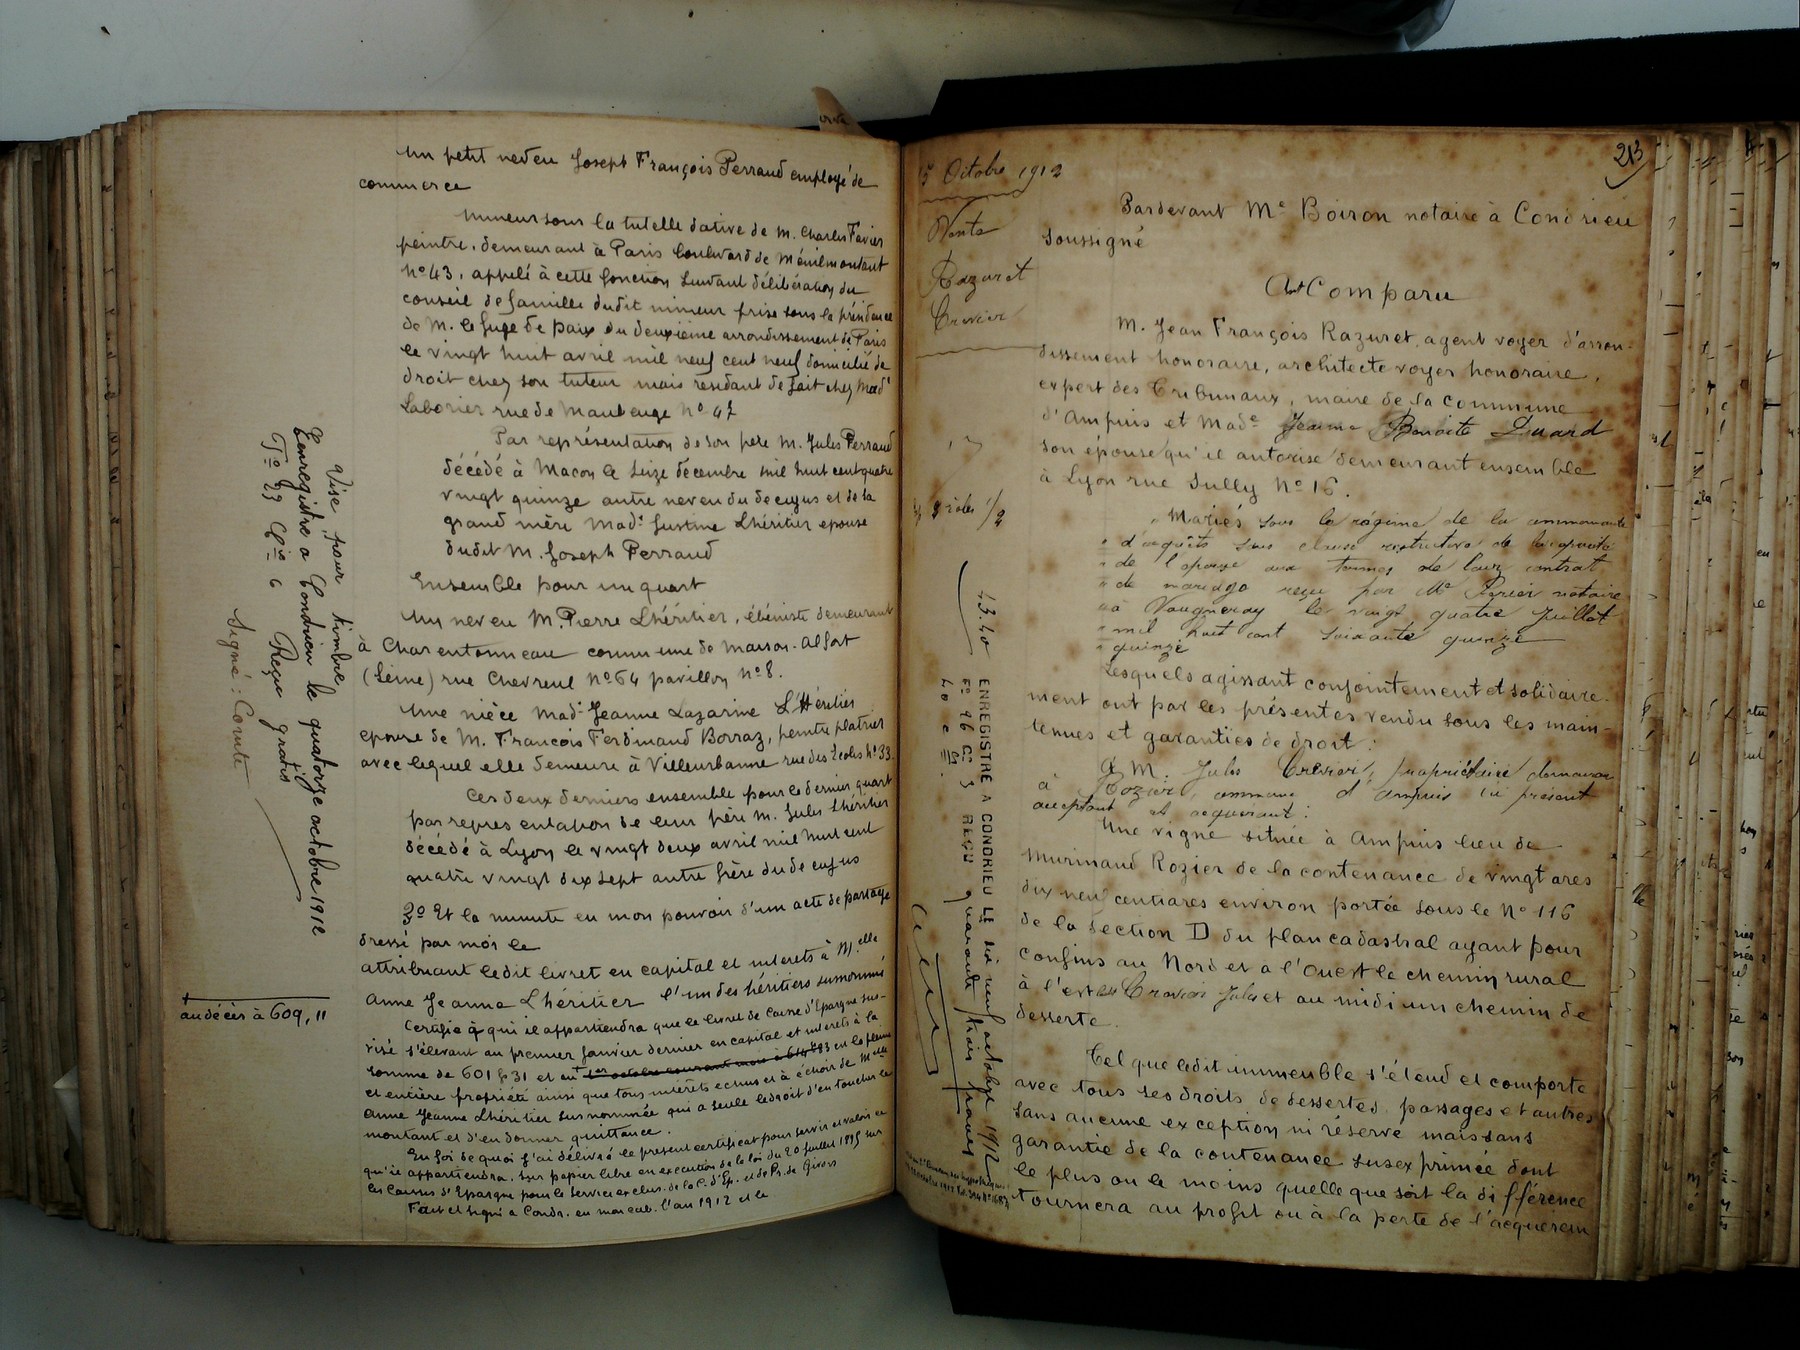 un petit neveu Joseph François Perraud employé de
commerce
mineur sous la tutelle dative de M. Charles Favier
peintre, demeurant à Paris boulevard de Ménilmontant
No 43, appelé à cette fonction suivant délibération du
conseil de famille dudit mineur prise sous la présidence
de M. le Juge de paix du deuxième arrondissement de Paris
le vingt huit avril mil neuf cent neuf domicilié de
droit chez son tuteur mais residant de fait chez Made
Laborier rue de Maubeuge No 47
Par représentation de son père M. Jules Perraud
décédé à Macon le seize décembre mil huit cent quatre
vingt quinze autre neveu du decujus et de la
grand mère Made Justine Lhéritier epouse
dudit M. Joseph Perraud
Ensemble pour un quart
Un neveu M. Pierre Lhéritier, ébéniste demeurant
à Charentonneau commune de Maison-Alfort
(Seine) rue Chevreul No 64 pavillon No 8.
Une nièce Made Jeanne Lazarine L'Héritier
epouse de M. Francois Ferdinand Borraz, peintre platrier
avec lequel elle demeure à Villeurbanne rue des Ecoles No 33.
Ces deux derniers ensemble pour le dernier quart
par representation de leur père M. Jules Lhéritier
décédé à Lyon le vingt deux avril mil huit cent
quatre vingt dix sept autre frère du de cujus
3o Et la minute en mon pouvoir d'un acte de partage
dressé par moi le
attribuant ledit livret en capital et interets à Melle
Anne Jeanne Lhéritier l'un des héritiers susnommés
Certifie à qui il appartiendra que le livret de Caisse d'Epargne sus-
visé s'élevant au premier Janvier dernier en capital et interets à la
somme de 601f31 et au 1er octobre courant mois à 614f83 en la pleine
et entière propriété ainsi que tous intérêts echus et à échoir de Melle
Anne Jeanne Lhéritier susnommée qui a seule le droit d'en toucher le
montant et d'en donner quittance.
En foi de quoi j'ai délivré le present certificat pour servir et valoir ce
qu'il appartiendra, sur papier libre en execution de la loi du 20 Juillet 1895 sur
les Caisses d'Epargne pour le service exclus. de la C. d'Ep. et de Pr. de Givors
Fait et signé a Condr. en mon cab. l'an 1912 et le
Visé pour timbre
Enregistré a Condrieu le quatorze octobre 1912
Fo 23 Co 6 Reçu gratis
Signé: Comte
au décès à 609,11
213
15 Octobre 1912
Vente
Razuret
Crevier
3 roles 1/2
43.40
ENREGISTRÉ A CONDRIEU LE dix neuf octobre 1912
Fo 96 Co 3 REÇU quarante trois francs
40 c
Pardevant Me Boiron notaire à Condrieu
soussigné
Ont Comparu
M. Jean François Razuret, agent voyer d'arron-
dissement honoraire, architecte voyer honoraire,
expert des Tribunaux, maire de la commune
d'Ampuis et Made Jeanne Benoite Duard
son épouse qu'il autorise demeurant ensemble
à Lyon rue Sully No 16.
" Mariés sous le régime de la communauté
" d'acquêts sans clause restrictive de la capacité
" de l'epouse aux termes de leur contrat
" de mariage reçu par Me Perier notaire
" à Vaugneray le vingt quatre Juillet
" mil huit cent soixante quinze
" quinze
Lesquels agissant conjointement et solidaire-
ment ont par les présentes vendu sous les main-
tenues et garanties de droit:
A M. Jules Crevier, propriétaire demeurant
à Rozier, commune d'Ampuis ici présent
acceptant et acquerant:
Une vigne située à Ampuis lieu de
Murinand Rozier de la contenance de vingt ares
dix neuf centiares environ portée sous le No 116
de la section D du plan cadastral ayant pour
confins au Nord et à l'Ouest le chemin rural
à l'est Crevier Jules et au midi un chemin de
desserte.
Tel que ledit immeuble s'étend et comporte
avec tous ses droits de dessertes, passages et autres
sans aucune exception ni réserve mais sans
garantie de la contenance susexprimée dont
le plus ou le moins quelle que soit la différence
tournera au profit ou à la perte de l'acquereur